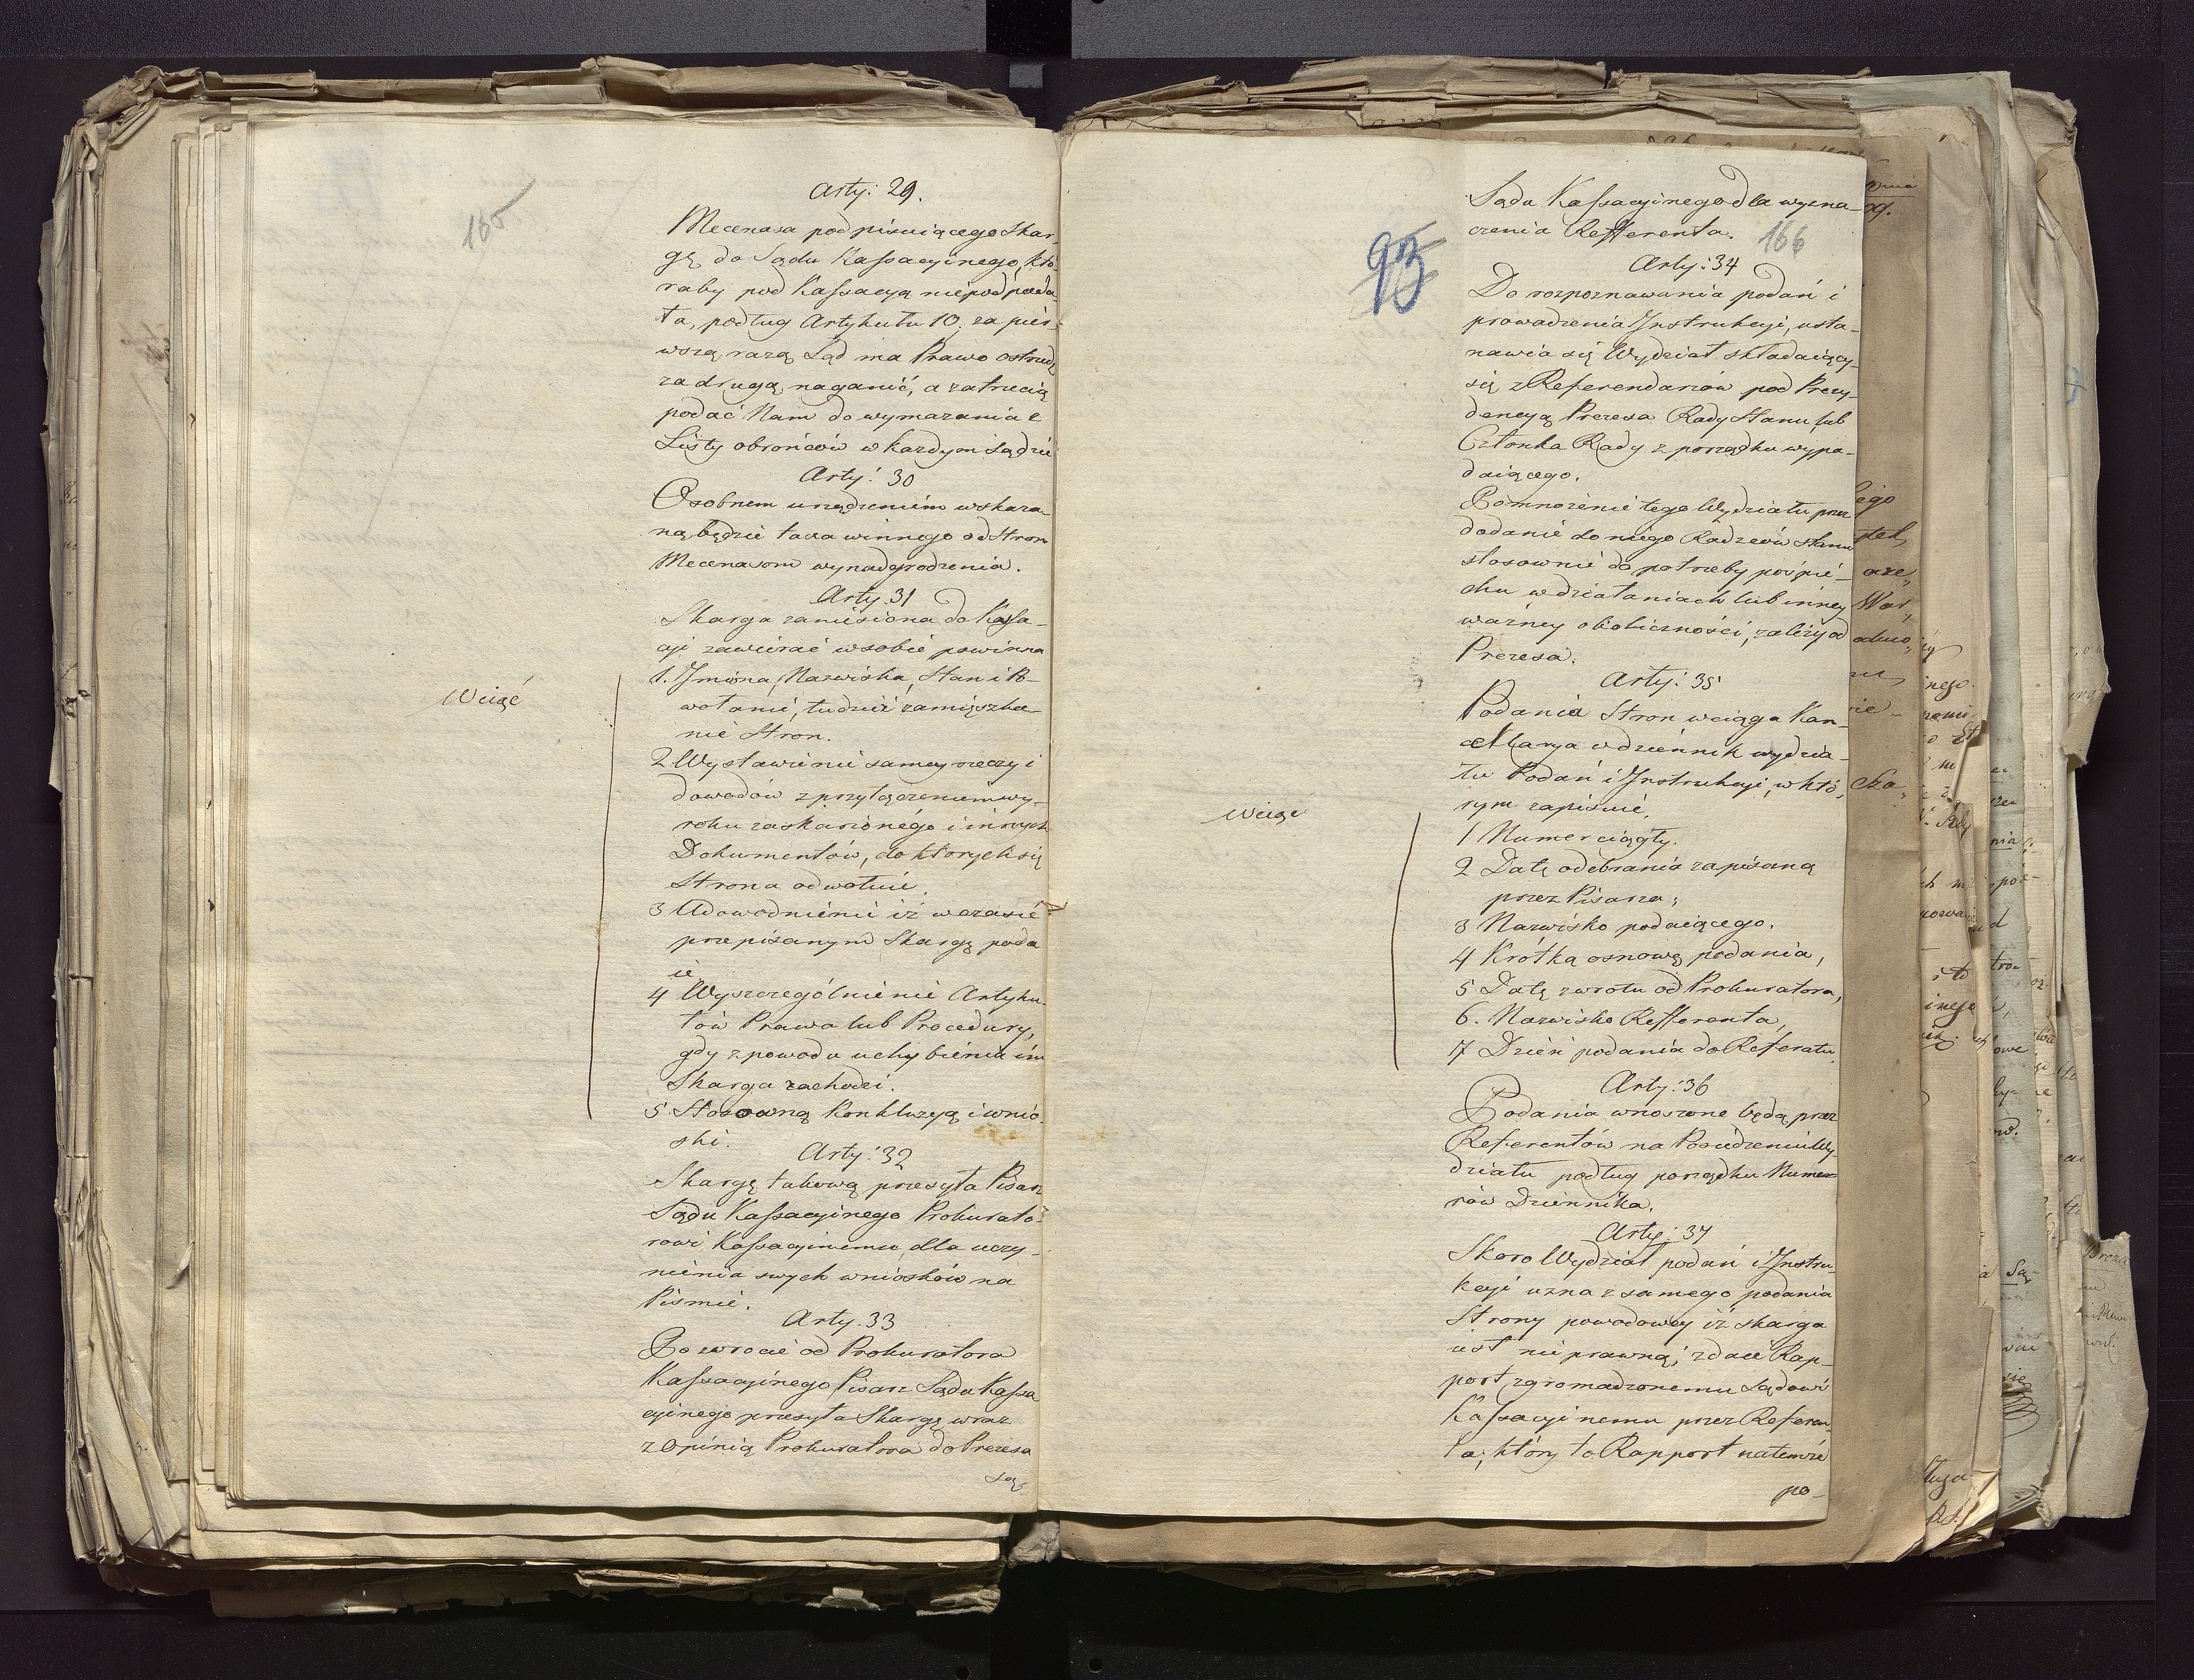 165
Arty: 29.
Mecenasa podpisuiącego Skar-
gę do Sądu Kassacyinego, któ-
raby pod Kassacyą niepodpada-
ła, podług Artykułu 10, za pier-
wszą razą Sąd ma Prawo ostrzedz
za drugą naganić, a za trzecią
podać Nam do wymazania z
Listy obrońców w każdym Sądzie
Arty: 30
Osobnem urządzeniem wskaza-
ną będzie taxa winnego od Stron
Mecenasom wynadgrodzenia.
Arty. 31
Skarga zaniesiona do Kassa-
cyi zawierać w sobie powinna
Wciąć
1. Jmiona, Nazwiska, Stan i Po-
wołanie, tudzież zamięszka-
nie Stron.
2 Wystawienie samey rzeczy i
dowodów z przyłączeniem wy-
roku zaskarżonego i innych
Dokumentów, do których się
Strona odwołuie.
3 Udowodnienie iż w czasie
przepisanym Skargę poda
ie
4 Wyszczególnienie Artyku-
łów Prawa lub Procedury,
gdy z powodu uchybienia im
Skarga zachodzi.
5 Stosowną Konkluzyą i wnio-
ski.
Arty: 32
Skargę takową przesyła Pisarz
Sądu Kassacyinego Prokurato-
rowi Kassacyinemu, dla uczy-
nienia swych wniosków na
Piśmie.
Arty. 33
Po zwrocie od Prokuratora
Kassacyinego Pisarz Sądu Kassa
cyinego przesyła Skargę wraz
z Opinią Prokuratora do Prezesa
Są-
Sądu Kassacyinego dla wyzna-
czenia Refferenta.
166
93
Arty: 34
Do rozpoznawania podań i
prowadzenia Jnstrukcyi, usta-
nawia się Wydział składaiący-
się z Referendarzów pod Prezy-
dencyą Prezesa Rady Stanu lub
Członka Rady z porządku wypa-
daiącego.
Pomnożenie tego Wydziału przez
dodanie do niego Radzców stanu
stosownie do potrzeby pośpie-
chu w działaniach lub inney
ważney okoliczności, zależy od
Prezesa.
Arty: 35
Podania Stron wciąga Kan-
cellarya w dziennik wydzia-
łu Podań i Jnstrukcyi, w któ-
rym zapisuie,
Wciąć
1 Numer ciągły.
2 Datę odebrania zapisaną
przez Pisarza;
3 Nazwisko podaiącego.
4 Krótką osnowę podania,
5 Datę zwrotu od Prokuratora,
6. Nazwisko Refferenta,
7 Dzień podania do Referatu.
Arty: 36
Podania wnoszone będą przez
Referentów na Posiedzeniu Wy-
działu podług porządku Nume-
rów Dziennika.
Arty: 37
Skoro Wydział podań i Jnstru-
kcyi uzna z samego podania
Strony powodowey iż skarga
iest nie prawną, zdaie Rap-
port zgromadzonemu Sądowi
Kassacyinemu przez Referen-
ta; który to Rapport natemże
po-